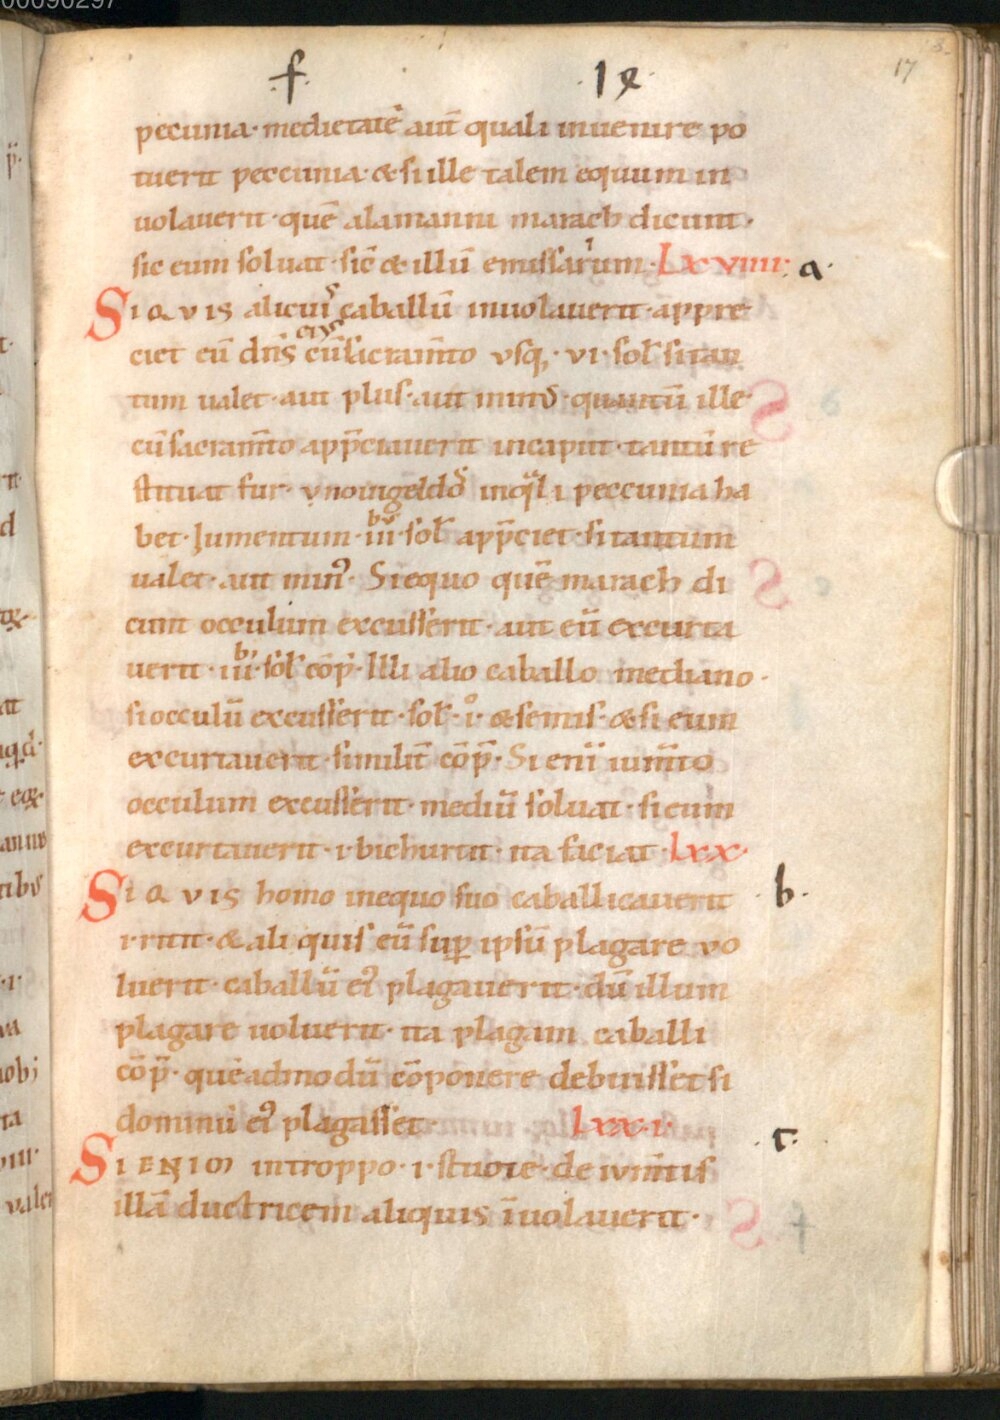 00090297
·f· ·19·
17
pecunia· medietatē aut̄ quali inuenire po
tuerit peccunia· & si ille talem equum in
uolauerit· quē alamanni marach dicunt·
sic eum soluat· sic̄ & illū emissarium· LXVIIII· a·
SI QVIS alicuiꝰ caballū inuolauerit· appre
ciet eū dn̄s eiꝰ cū sacram̄to vsq;· VI· sol̄ si tan
tum ualet· aut plus· aut minꝰ· quantū ille
cū sacram̄to app̄ciauerit in caput· tantū re
stituat fur· vnouigeldoꝰ in qͣli peccunia ha
bet· Jumentum· iii·bꝰ sol̄ app̄ciet· si tantum
ualet· aut minꝰ· Si equo quē marach di
cunt occulum excusserit· aut eū excurta
uerit· iii·bꝰ sol̄ cōp̄· Illi alio caballo mediano·
si occulū excusserit· sol̄· i·ͦ & semis· & si eum
excurtauerit· similit̄ cōp̄· Si enī ium̄to
occulum excusserit· mediū soluat· si eum
excurtauerit· i· bichurtit· ita faciat· LXX·
SI QVIS homo in equo suo caballicauerit b·
i· ritit· & ali quis eū suꝑ ipsū plagare vo
luerit· caballū eiꝰ plagauerit· dū illum
plagare uoluerit· ita plagam caballi
cōp̄· quēadmodū cōponere debuisset si
dominū eiꝰ plagasset· LXX·I·
SI ENIM in troppo· i· stuote· de ium̄tis c·
illā ductricem aliquis īuolauerit·